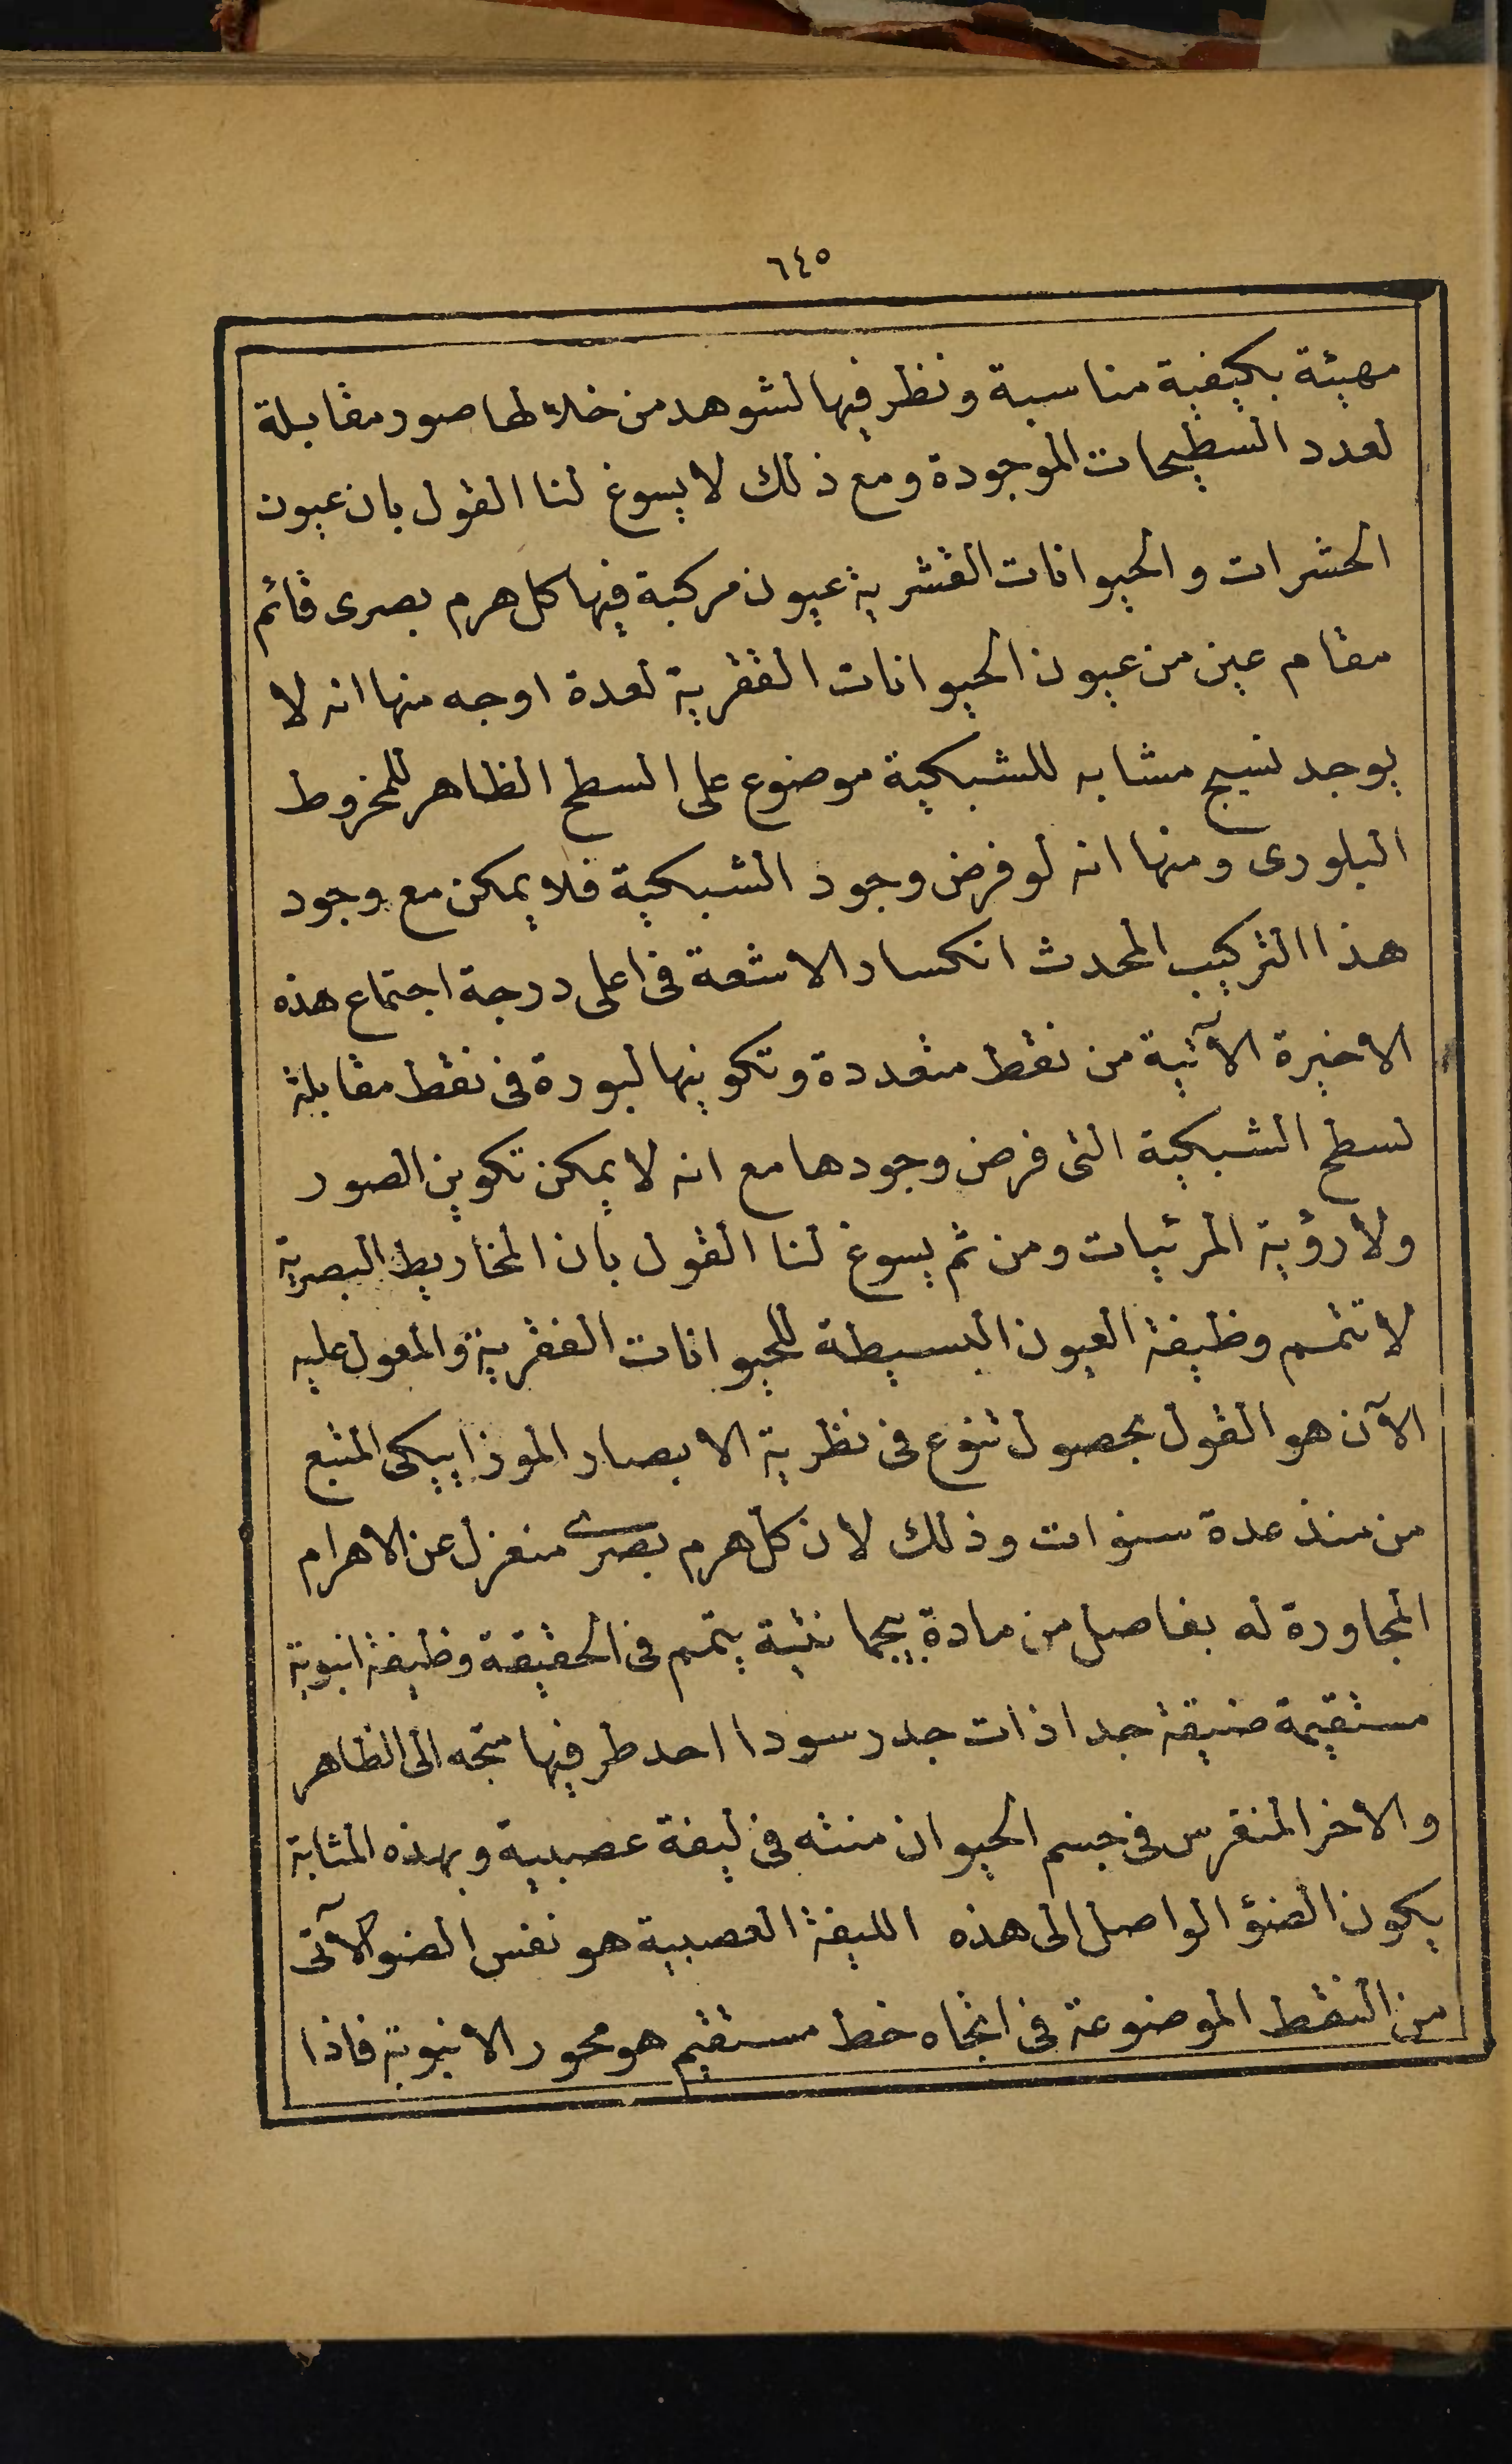 ٦٤٥
مهيئة بكيفية مناسبة ونظر فيها لشوهد من خلالها صور مقابلة
لعدد السطيحات الموجودة ومع ذلك لا يسوغ لنا القول بان عيون
الحشرات والحيوانات القشرية عيون مركبة فيها كل هرم بصرى قائم
مقام عين من عيون الحيوانات الفقرية لعدة اوجه منها انه لا
يوجد نسيج مشابه للشبكية موضوع على السطح الظاهر للمخروط
البلورى ومنها انه لو فرض وجود الشبكية فلا يمكن مع وجود
هذا التركيب المحدث انكسار الاشعة فى اعلى درجة اجتماع هذه
الاخيرة الآتية من نقط متعددة وتكوينها لبورة فى نقط مقابلة
لسطح الشبكية التى فرض وجودها مع انه لا يمكن تكوين الصور
ولا رؤية المرئيات ومن ثم يسوغ لنا القول بان المخاريط البصرية
لا تتمم وظيفة العيون البسيطة للحيوانات الفقرية والمعول عليه
الآن هو القول بحصول تنوع فى نظرية الابصار الموزاييكى المتبع
من منذ عدة سنوات وذلك لان كل هرم بصرى منعزل عن الاهرام
المجاورة له بفاصل من مادة بيجمانتية يتمم فى الحقيقة وظيفة انبوبة
مستقيمة ضيقة جدا ذات جدر سودا احد طرفيها متجه الى الظاهر
والاخر المنغرس فى جسم الحيوان منته فى ليفة عصبية وبهذه المثابة
يكون الضؤ الواصل الى هذه الليفة العصبية هو نفس الضو الآتى
من النقط الموضوعة فى اتجاه خط مستقيم هو محور الانبوبة فاذا